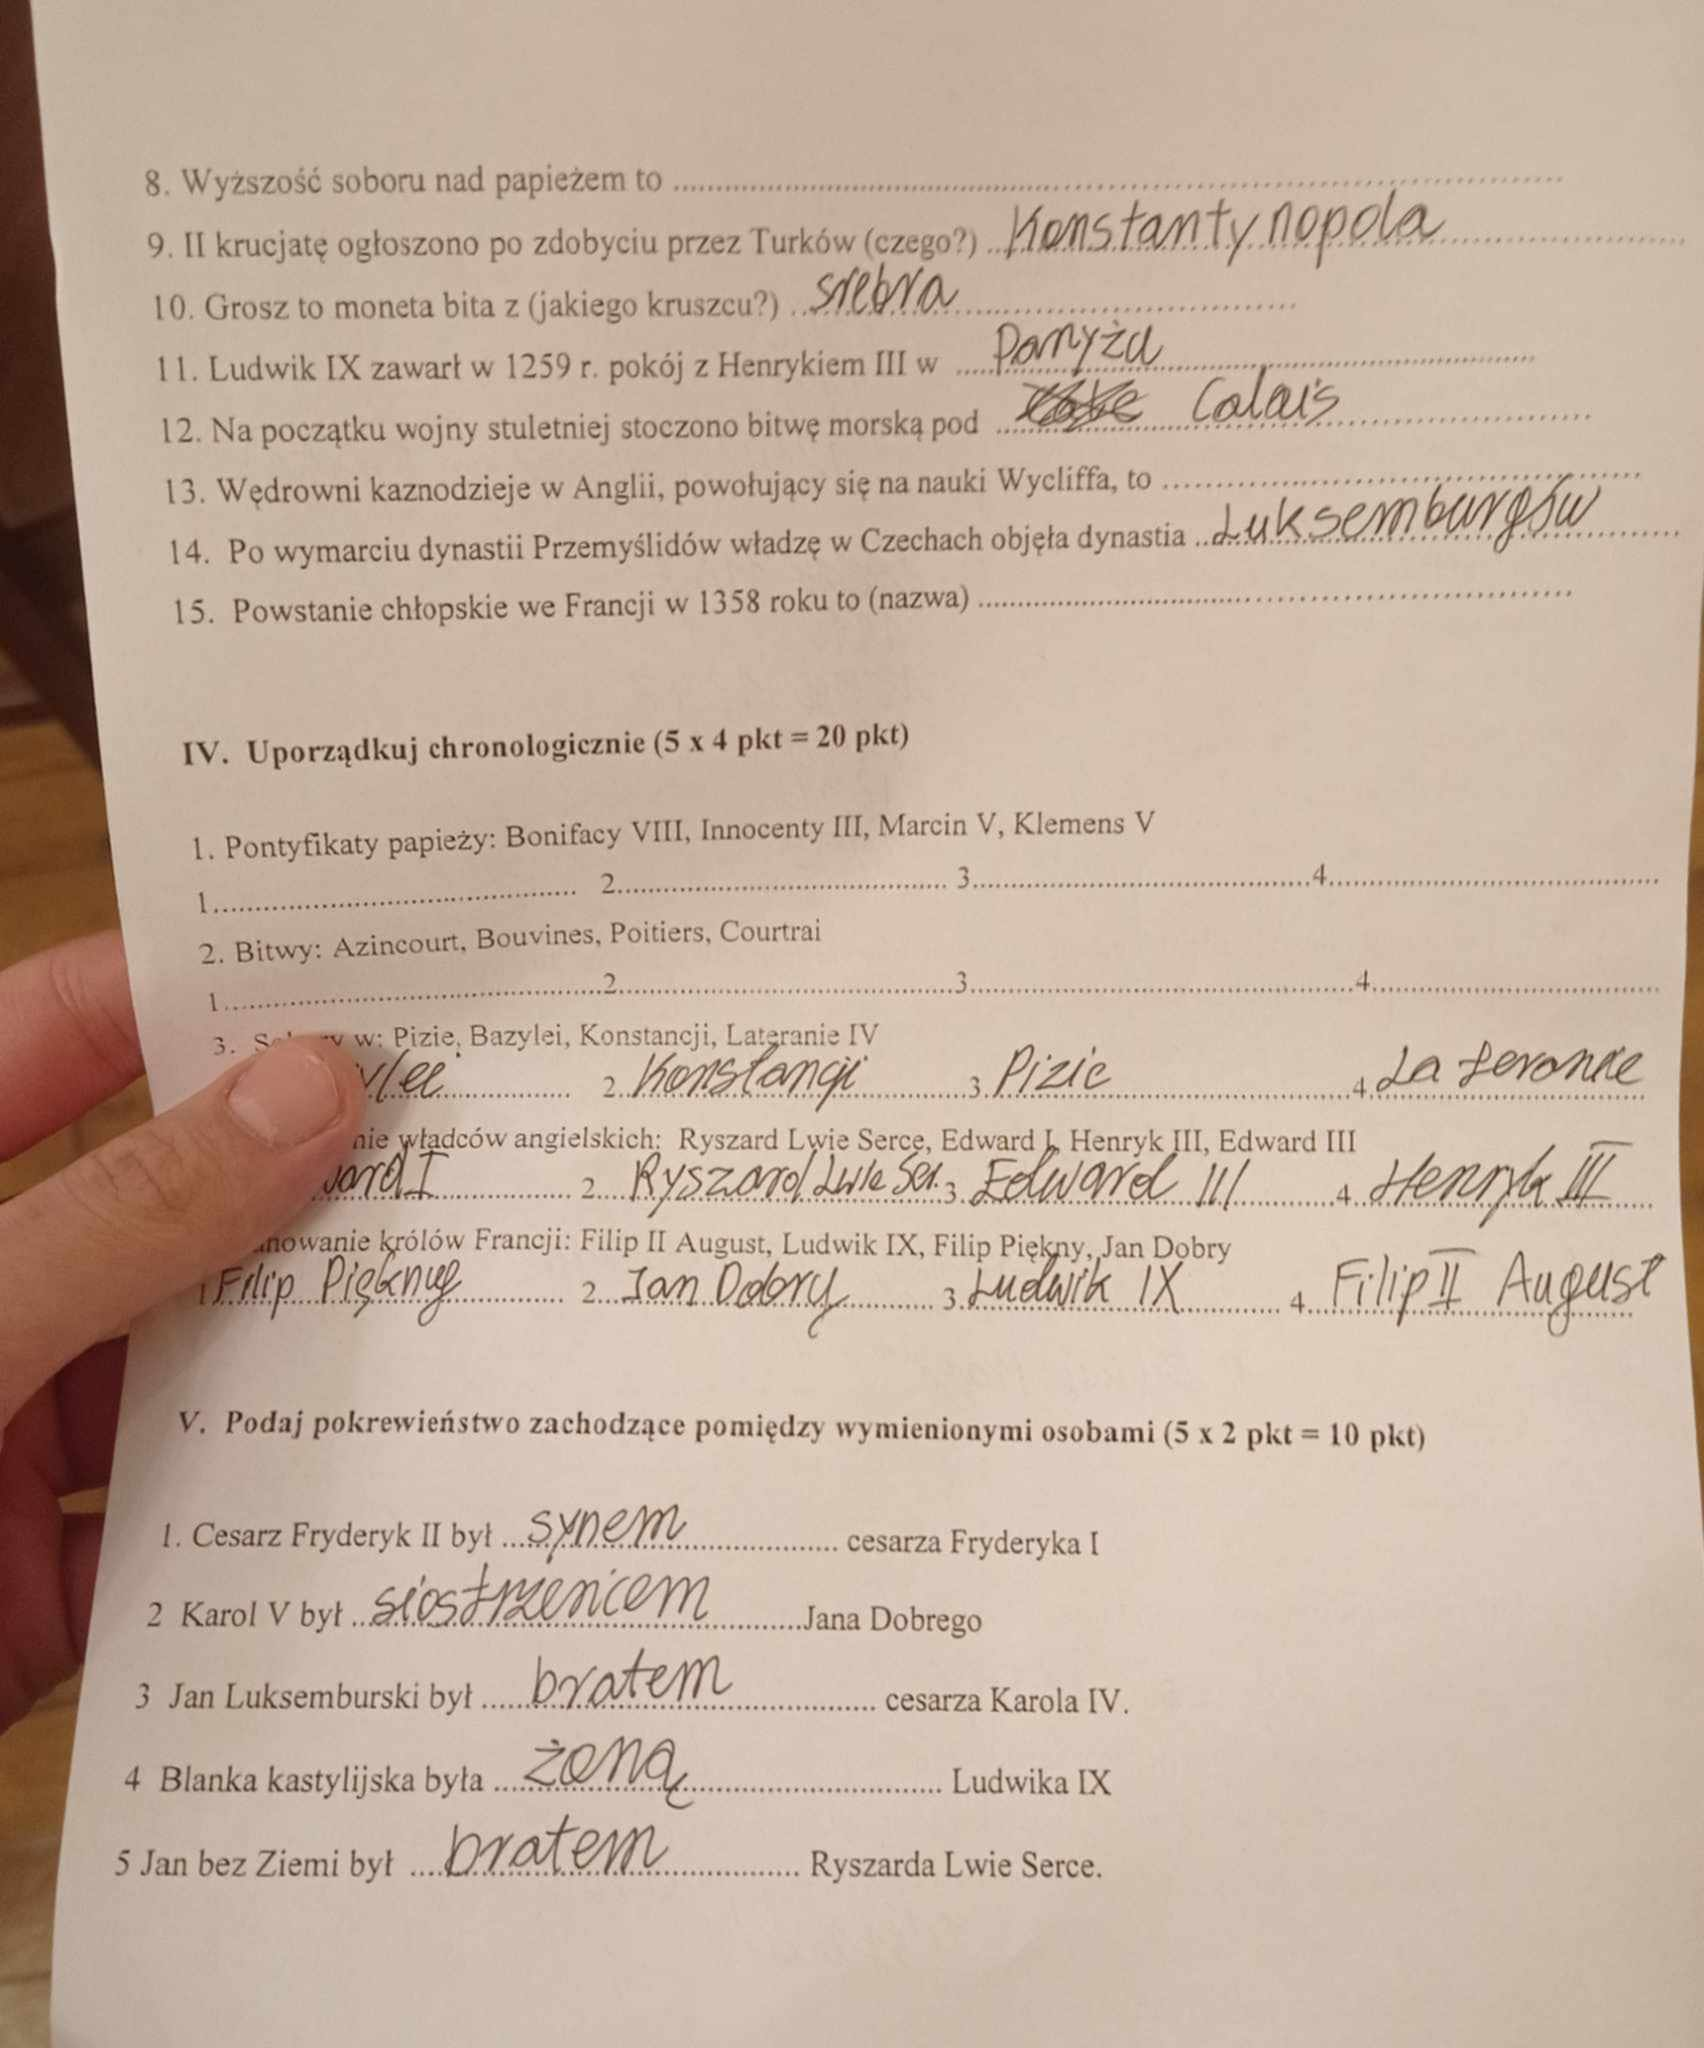 8. Wyższość soboru nad papieżem to ..........
9. II krucjatę ogłoszono po zdobyciu przez Turków (czego?) .. Konstantynopola ..........
10. Grosz to moneta bita z (jakiego kruszcu?) .. srebra ..........
11. Ludwik IX zawarł w 1259 r. pokój z Henrykiem III w ..... Paryżu ..........
12. Na początku wojny stuletniej stoczono bitwę morską pod ..... Calais ..........
13. Wędrowni kaznodzieje w Anglii, powołujący się na nauki Wycliffa, to ..........
14. Po wymarciu dynastii Przemyślidów władzę w Czechach objęła dynastia .. Luksemburgów ..........
15. Powstanie chłopskie we Francji w 1358 roku to (nazwa) ..........
IV. Uporządkuj chronologicznie (5 x 4 pkt = 20 pkt)
1. Pontyfikaty papieży: Bonifacy VIII, Innocenty III, Marcin V, Klemens V
1.......... 2.......... 3.......... 4..........
2. Bitwy: Azincourt, Bouvines, Poitiers, Courtrai
1.......... 2.......... 3.......... 4..........
3. w: Pizie, Bazylei, Konstancji, Lateranie IV
2.. Konstancji 3. Pizie 4. Lateranie
władców angielskich: Ryszard Lwie Serce, Edward I, Henryk III, Edward III
I 2... Ryszard Lwie Ser. 3. Edward III 4.. Henryk III
królów Francji: Filip II August, Ludwik IX, Filip Piękny, Jan Dobry
1 Filip Piękny 2... Jan Dobry 3. Ludwik IX 4.. Filip II August
V. Podaj pokrewieństwo zachodzące pomiędzy wymienionymi osobami (5 x 2 pkt = 10 pkt)
1. Cesarz Fryderyk II był ... synem .......... cesarza Fryderyka I
2 Karol V był .. siostrzeńcem .......... Jana Dobrego
3 Jan Luksemburski był ..... bratem .......... cesarza Karola IV.
4 Blanka kastylijska była .... żoną .......... Ludwika IX
5 Jan bez Ziemi był .... bratem .......... Ryszarda Lwie Serce.